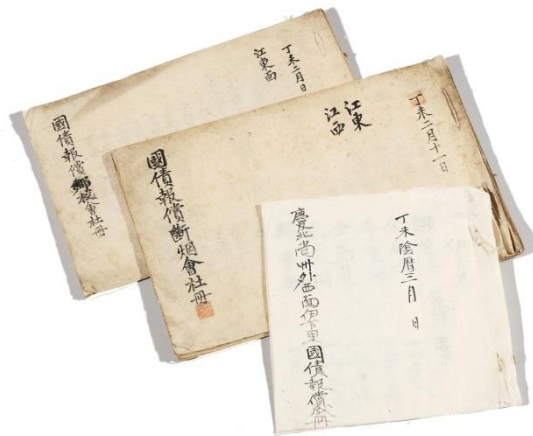 丁未二月日
江東面
國債報償會社冊
丁未二月十一日
江東
江西
國債報償斷烟會社冊
丁未陰曆三月 日
慶北尙州外西面伊下里國債報償冊